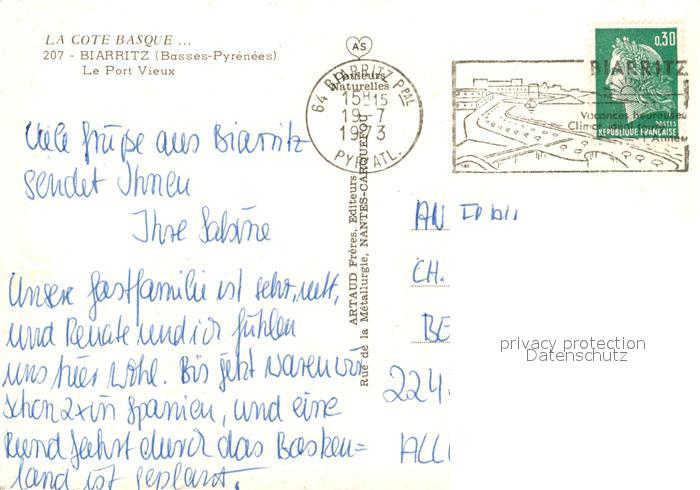 LA COTE BASQUE ...
207 - BIARRITZ (Basses-Pyrénées)
Le Port Vieux
AS
Couleurs
Naturelles
64 BIARRITZ PPAL
15H15
19-7
1973
PYR. ATL.
0,30
BIARRITZ
Vacances heureuses
Climat idéal
l'Année
POSTES
RÉPUBLIQUE FRANÇAISE
ARTAUD Frères, Editeurs
Rue de la Métallurgie, NANTES-CARQUEFOU
Viele Grüße aus Biarritz
sendet Ihnen
Ihre Sabine
Unsere Gastfamilie ist sehr nett,
und Renate und ich fühlen
uns hier wohl. Bis jetzt waren wir
schon 2x in Spanien, und eine
Rundfahrt durch das Basken=
land ist geplant.
AN
CH.
BE
224
ALL
privacy protection
Datenschutz